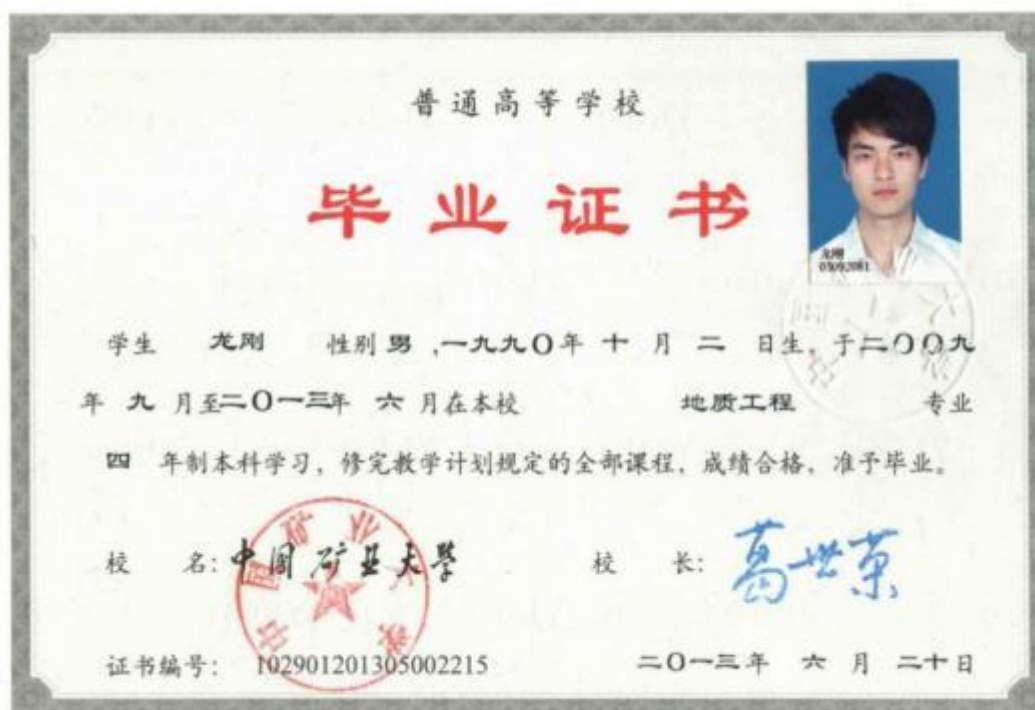 普通高等学校
毕业证书
龙刚
05092081
学生 龙刚 性别 男 ,一九九〇年 十 月 二 日生, 于二〇〇九
年 九 月至二〇一三年 六 月在本校 地质工程 专业
四 年制本科学习, 修完教学计划规定的全部课程, 成绩合格, 准予毕业。
校 名: 中国矿业大学 校 长: 葛世荣
中国矿业大学
证书编号: 102901201305002215 二〇一三年 六 月 二十日